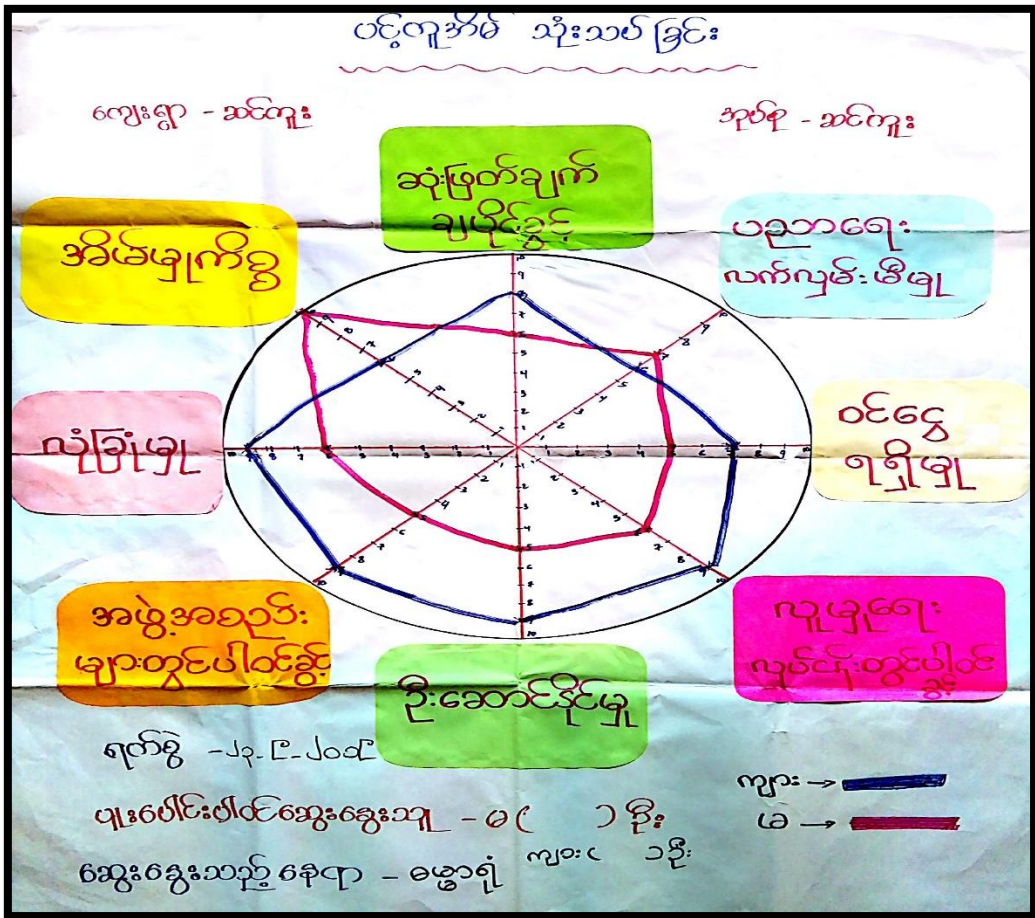 ပင့်ကူအိမ် သုံးသပ်ခြင်း
ကျေးရွာ - ဆင်ကူး
အုပ်စု - ဆင်ကူး
ဆုံးဖြတ်ချက်
ချပိုင်ခွင့်
အိမ်မှုကိစ္စ
ပညာရေး
လက်လှမ်းမီမှု
လုံခြုံမှု
ဝင်ငွေ
ရရှိမှု
အဖွဲ့အစည်း
များတွင်ပါဝင်ခွင့်
ဦးဆောင်နိုင်မှု
လူမှုရေး
လုပ်ငန်းတွင်ပါဝင်
ခွင့်
ရက်စွဲ -၂၃-၉-၂၀၁၉
ပူးပေါင်းပါဝင်ဆွေးနွေးသူ - မ ( ) ဦး
ကျား ( ) ဦး
ဆွေးနွေးသည့်နေရာ - ဓမ္မာရုံ
ကျား →
မ →